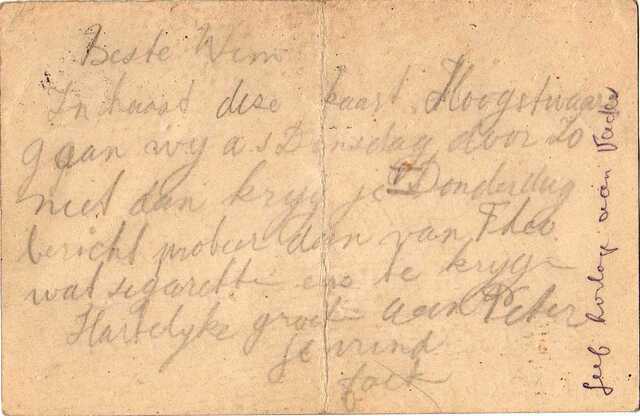 Beste Wim
In haast deze kaart. Hoogstwaar
gaan wij a.s Dinsdag door Zo
niet dan kryg je v Donderdag
bericht probeer dan van Theo
wat sigarette enz te kryge
Hartelyke groete aan Peter
je vriend
Jack
Geef horloge aan Vader